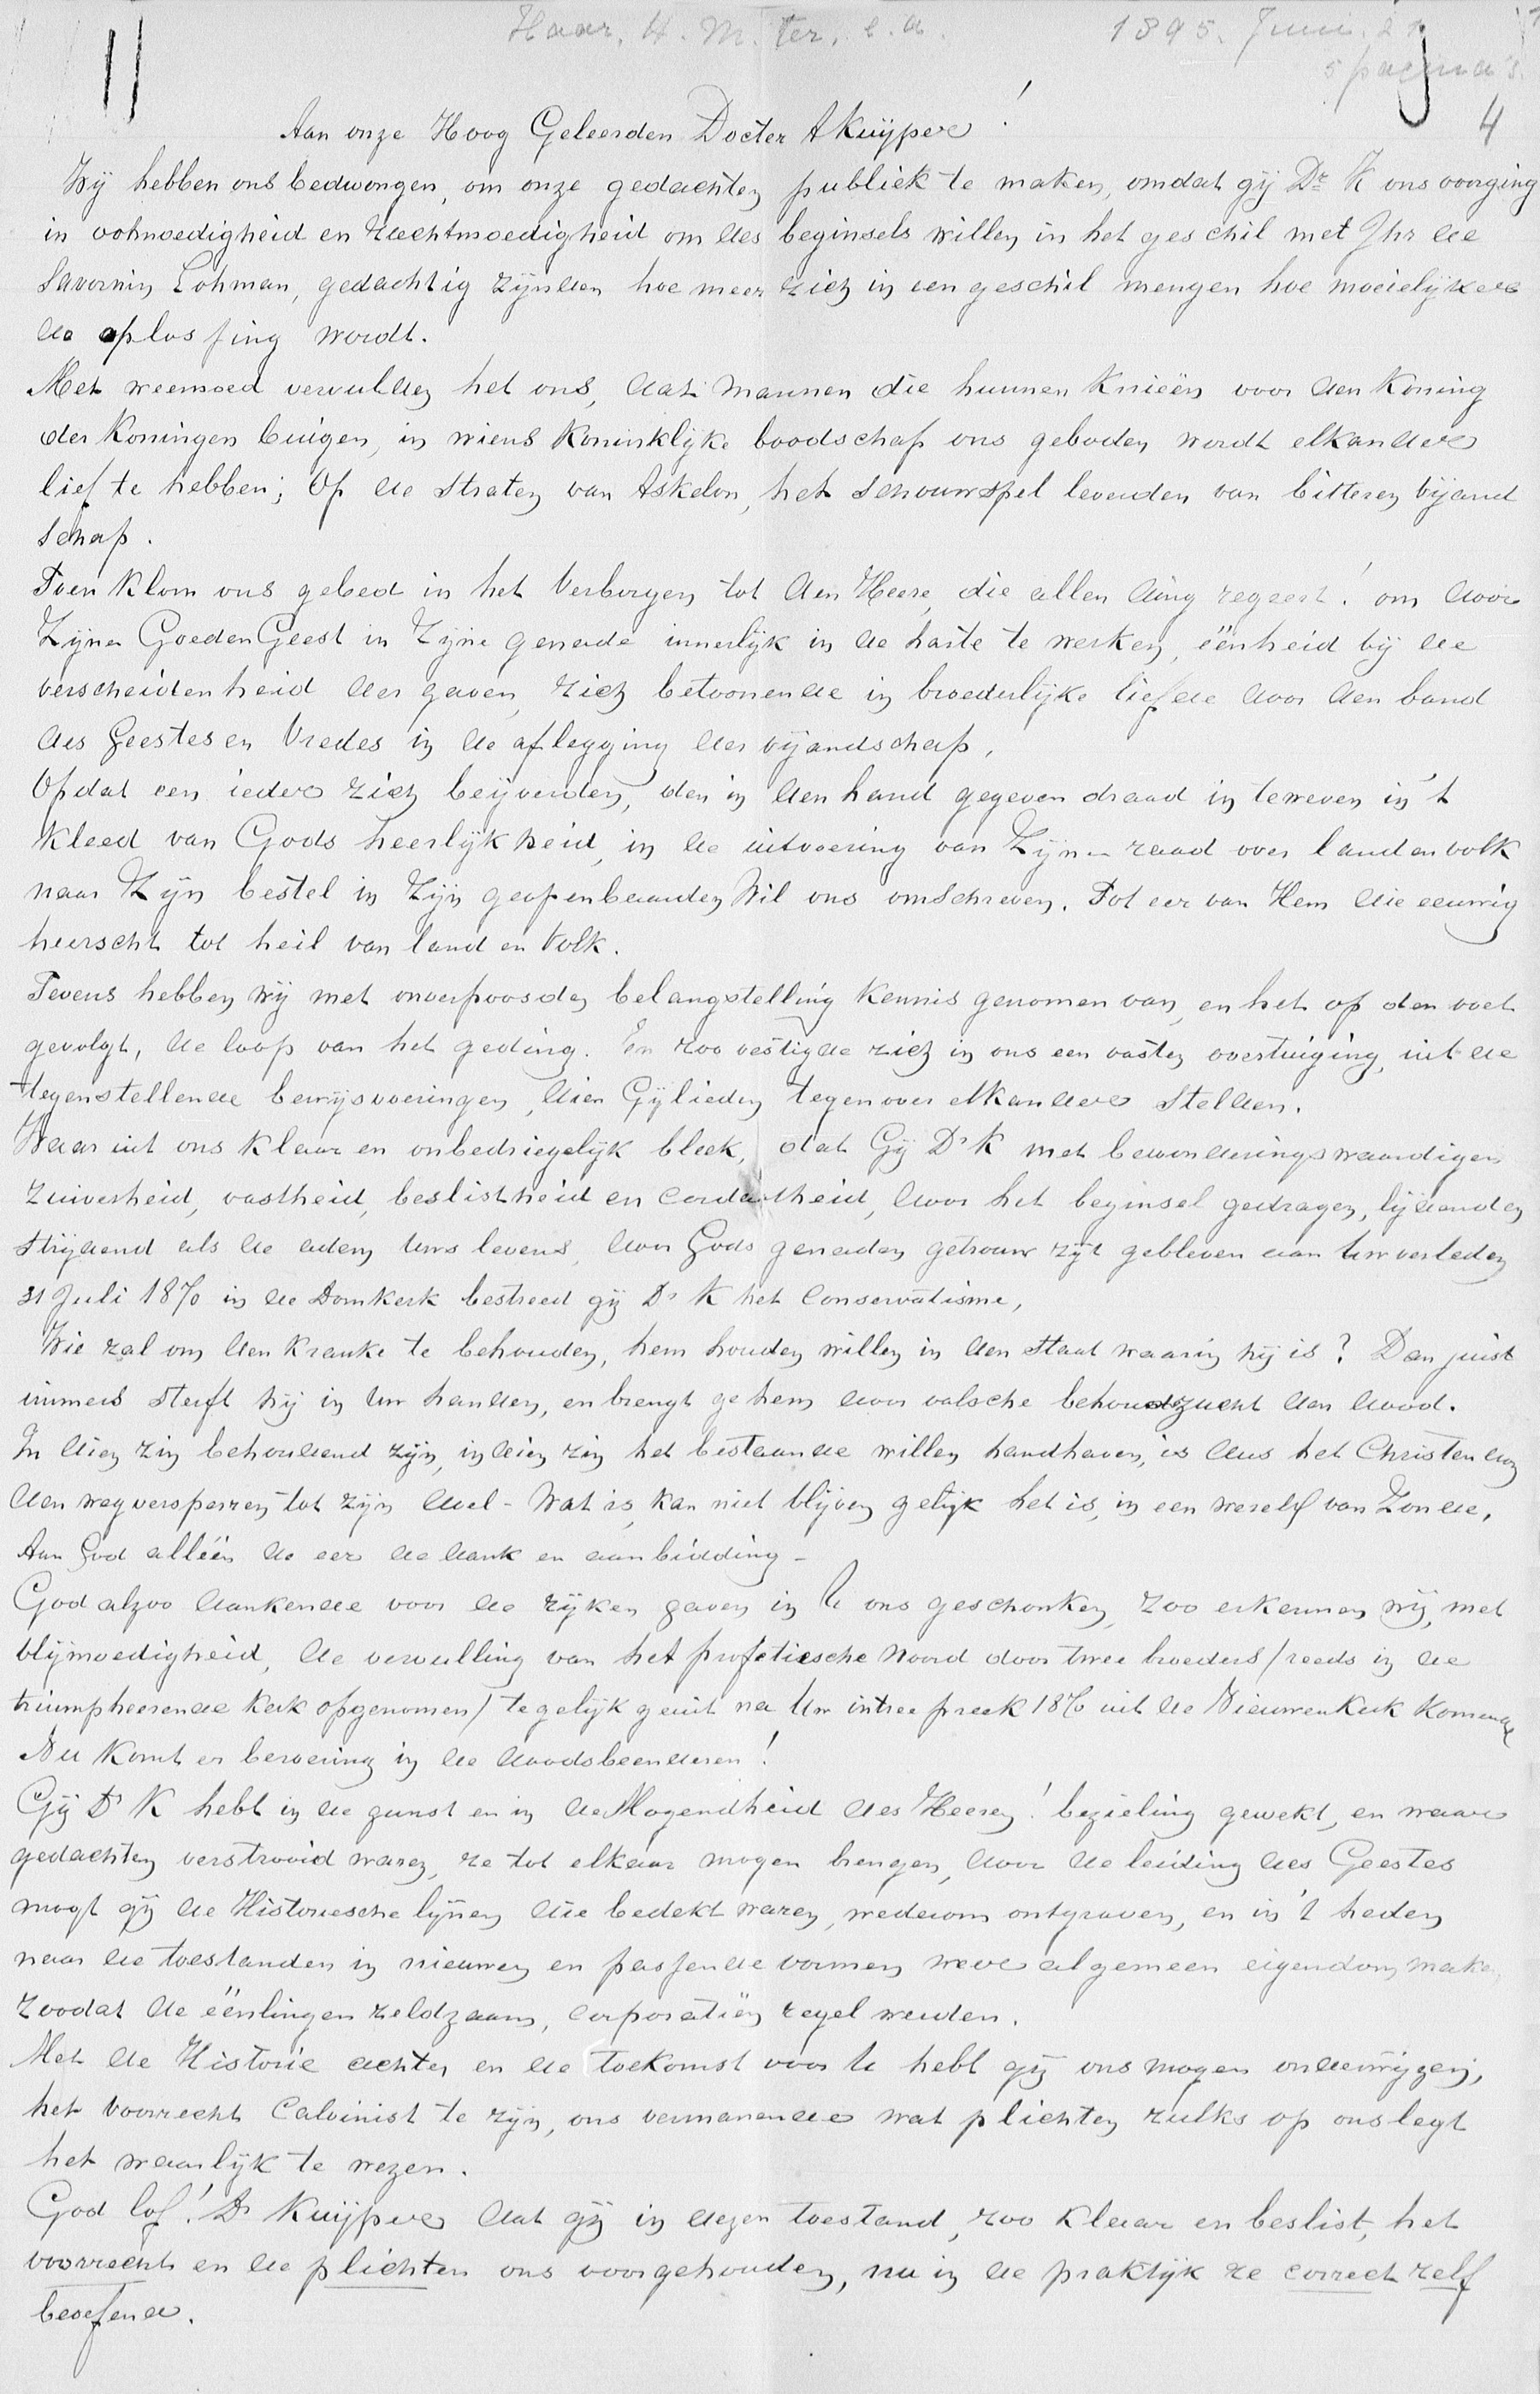 Haar, H. M. ter, e.a. 1895. Juni. 21
5 pagina's
4
Aan onze Hoog Geleerden Docter A Kuÿper!
Wÿ hebben ons bedwongen, om onze gedachten publiek te maken, omdat gÿ Dr K ons voorging
in ootmoedigheid en zachtmoedigheid om des beginsels willen in het geschil met Jhr de
Savornin Lohman, gedachtig zÿnden hoe meer zich in een geschil mengen hoe moeielÿker
de oplossing wordt.
Met weemoed vervulden het ons, dat mannen die hunnen Knieën voor den Koning
der Koningen buigen, in wiens Koninklÿke boodschap ons geboden wordt elkander
lief te hebben; Op de Straten van Askelon, het Schouwspel leverden van bitteren vÿand
schap.
Toen Klom ons gebed in het Verborgen tot den Heere, die allen ding regeert! om door
Zÿner Goeden Geest in Zÿne genade innerlÿk in de harte te werken, ëenheid bÿ de
verscheidenheid der gaven, zich betoonende in broederlÿke liefde door den band
des Geestes en Vredes in de aflegging der vÿandschap.
Opdat een ieder zich beÿverden, den in den hand gegeven draad in teweven in 't
Kleed van Gods heerlÿkheid, in de uitvoering van Zÿner raad over land en volk
naar Zÿn bestel in Zÿn geopenbaarden Wil ons omschreven. Tot eer van Hem die eeuwig
heerscht tot heil van land en Volk.
Tevens hebben wÿ met onverpoosden belangstelling Kennis genomen van, en het op den voet
gevolgt, de loop van het geding. En zoo vestigde zich in ons een vasten overtuiging, uit de
tegenstellende bewÿsvoeringen, dien Gÿlieden tegenover elkander Stelden.
Waar uit ons Klaar en onbedriegelÿk bleek, dat Gÿ Dr K met bewonderingswaardigen
zuiverheid, vastheid, beslistheid en cordaatheid, door het beginsel gedragen, lÿdend en
strÿdend als de adem Uws levens, door Gods genaden getrouw zÿt gebleven aan Uw verleden
31 Juli 1870 in de Domkerk bestreed gÿ Dr K het Conservatisme,
Wie zal om den Kranke te behouden, hem houden willen in den Staat waarin hÿ is? Dan juist
immers Sterft hÿ in Uw handen, en brengt ge hem door valsche behoudszucht den dood.
In dien zin behoudend zÿn, in dien zin het bestaande willen handhaven, is dus het Christendom
den weg versperren tot zÿn doel - Wat is, kan niet blÿven gelÿk het is, in een wereld van Zonde.
Aan God alléén de eer de dank en aanbidding -
God alzoo dankende voor de rÿken gaven in U ons geschonken, zoo erkennen wÿ, met
blÿmoedigheid, de vervulling van het profetiesche Woord door twee broeders / reeds in de
triumpheerende Kerk opgenomen / tegelÿk geuit na Uw intree preek 1870 uit de Nieuwenkerk Komende
Nu Komt er beroering in de doodsbeenderen!
Gÿ Dr K hebt in de gunst en in de Mogendheid des Heeren! bezieling gewekt, en waar
gedachten verstrooid waren, ze tot elkaar mogen brengen, door de leiding des Geestes
mogt gÿ de Historiesche lÿnen die bedekt waren, wederom ontgraven, en in 't heden
naar de toestanden in nieuwen en passende vormen weer algemeen eigendom maken
zoodat de ëenlingen zeldzaam, corporatiën regel werden.
Met de Historie achter en de toekomst voor U hebt gÿ ons mogen onderwÿzen,
het Voorrecht Calvinist te zÿn, ons vermanende wat plichten zulks op ons legt
het waarlÿk te wezen.
God lof! Dr Kuÿper dat gÿ in dezen toestand, zoo Klaar en beslist, het
voorrecht en de plichten ons voorgehouden, nu in de praktÿk ze correct zelf
beoefend.